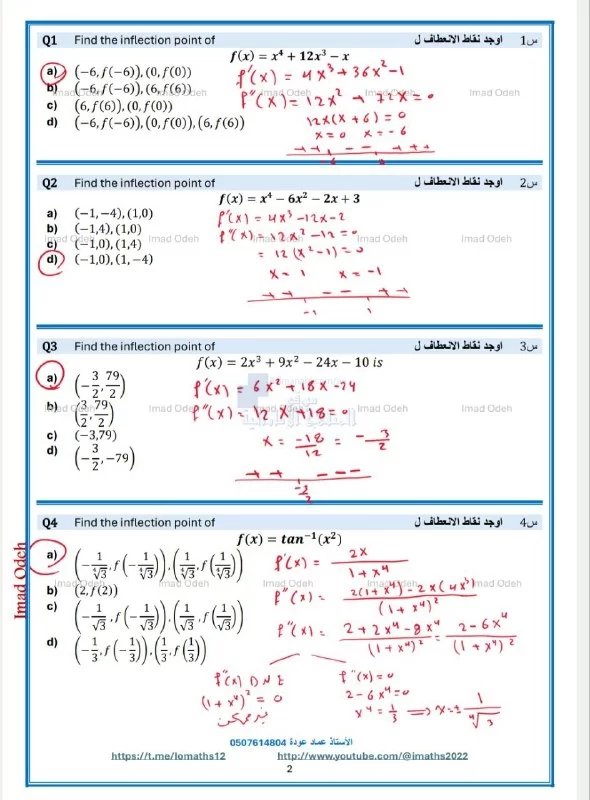 Q1 Find the inflection point of اوجد نقاط الانعطاف ل س1
f(x) = x⁴ + 12x³ − x
a) (−6, f(−6)), (0, f(0))
b) (−6, f(−6)), (6, f(6))
c) (6, f(6)), (0, f(0))
d) (−6, f(−6)), (0, f(0)), (6, f(6))
f'(x) = 4x³ + 36x² − 1
f''(x) = 12x² + 72x = 0
12x(x + 6) = 0
x = 0 x = −6
++ −− +++
Imad Odeh Imad Odeh Imad Odeh
Q2 Find the inflection point of اوجد نقاط الانعطاف ل س2
f(x) = x⁴ − 6x² − 2x + 3
a) (−1, −4), (1,0)
b) (−1,4), (1,0)
c) (−1,0), (1,4)
d) (−1,0), (1, −4)
f'(x) = 4x³ − 12x − 2
f''(x) = 12x² − 12 = 0
= 12(x² − 1) = 0
x = 1 x = −1
++ −− ++
−1 1
Imad Odeh Imad Odeh Imad Odeh
Q3 Find the inflection point of اوجد نقاط الانعطاف ل س3
f(x) = 2x³ + 9x² − 24x − 10 is
a) (−3/2, 79/2)
b) (3/2, 79/2)
c) (−3,79)
d) (−3/2, −79)
f'(x) = 6x² + 18x − 24
f''(x) = 12x + 18 = 0
x = −18/12 = −3/2
++ −−−
−3/2
Imad Odeh Imad Odeh Imad Odeh
Q4 Find the inflection point of اوجد نقاط الانعطاف ل س4
f(x) = tan⁻¹(x²)
a) (−1/⁴√3, f(−1/⁴√3)), (1/⁴√3, f(1/⁴√3))
b) (2, f(2))
c) (−1/√3, f(−1/√3)), (1/√3, f(1/√3))
d) (−1/3, f(−1/3)), (1/3, f(1/3))
f'(x) = 2x/(1 + x⁴)
f''(x) = (2(1 + x⁴) − 2x(4x³))/(1 + x⁴)²
f''(x) = (2 + 2x⁴ − 8x⁴)/(1 + x⁴)² = (2 − 6x⁴)/(1 + x⁴)²
f''(x) DNE f''(x) = 0
(1 + x⁴)² = 0 2 − 6x⁴ = 0
غير ممكن x⁴ = 1/3 ⟹ x = ± 1/⁴√3
Imad Odeh Imad Odeh Imad Odeh
Imad Odeh
الأستاذ عماد عودة 0507614804
https://t.me/lomaths12 http://www.youtube.com/@imaths2022
2